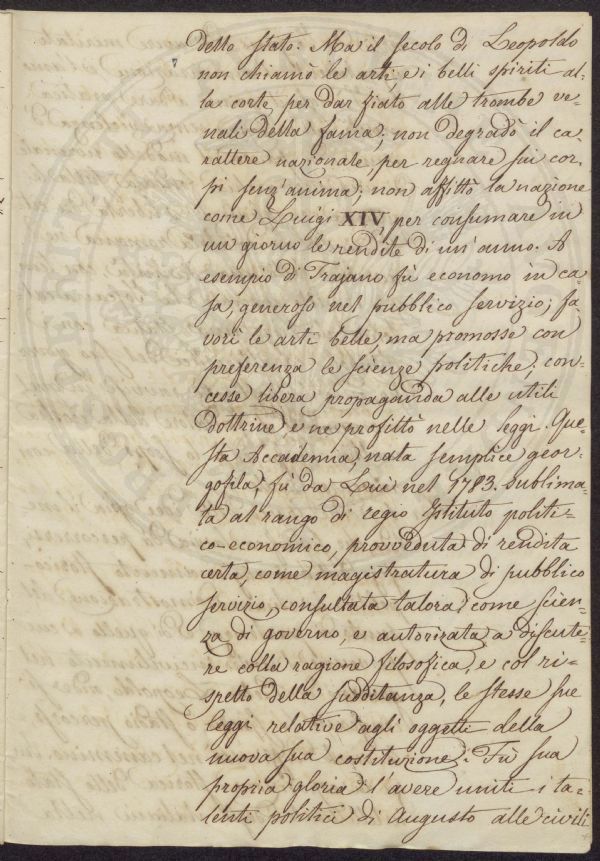 dello stato. Ma il secolo di Leopoldo
non chiamò le arti, e i belli spiriti al-
la corte, per dar fiato alle trombe ve-
nali della fama; non degradò il ca-
rattere nazionale, per regnare sui cor-
pi senz'anima; non affittò la nazione
come Luigi XIV, per consumare in
un giorno le rendite di un'anno. A
esempio di Trajano fù economo in ca-
sa, generoso nel pubblico servizio; fa-
vorì le arti belle, ma promosse con
preferenza le scienze politiche; con-
cesse libera propaganda alle utili
dottrine e ne profittò nelle leggi. Que-
sta Accademia, nata semplice geor-
gofila, fù da Lui nel 1783. sublima-
ta al rango di regio Istituto politi-
co-economico, provveduta di rendita
certa, come magistratura di pubblico
servizio, consultata talora come scien-
za di governo, e autorizzata a discute-
re colla ragione filosofica, e col ri-
spetto della sudditanza, le stesse sue
leggi relative agli oggetti della
nuova sua costituzione. Fù sua
propria gloria l'avere uniti i ta-
lenti politici di Augusto alle civili